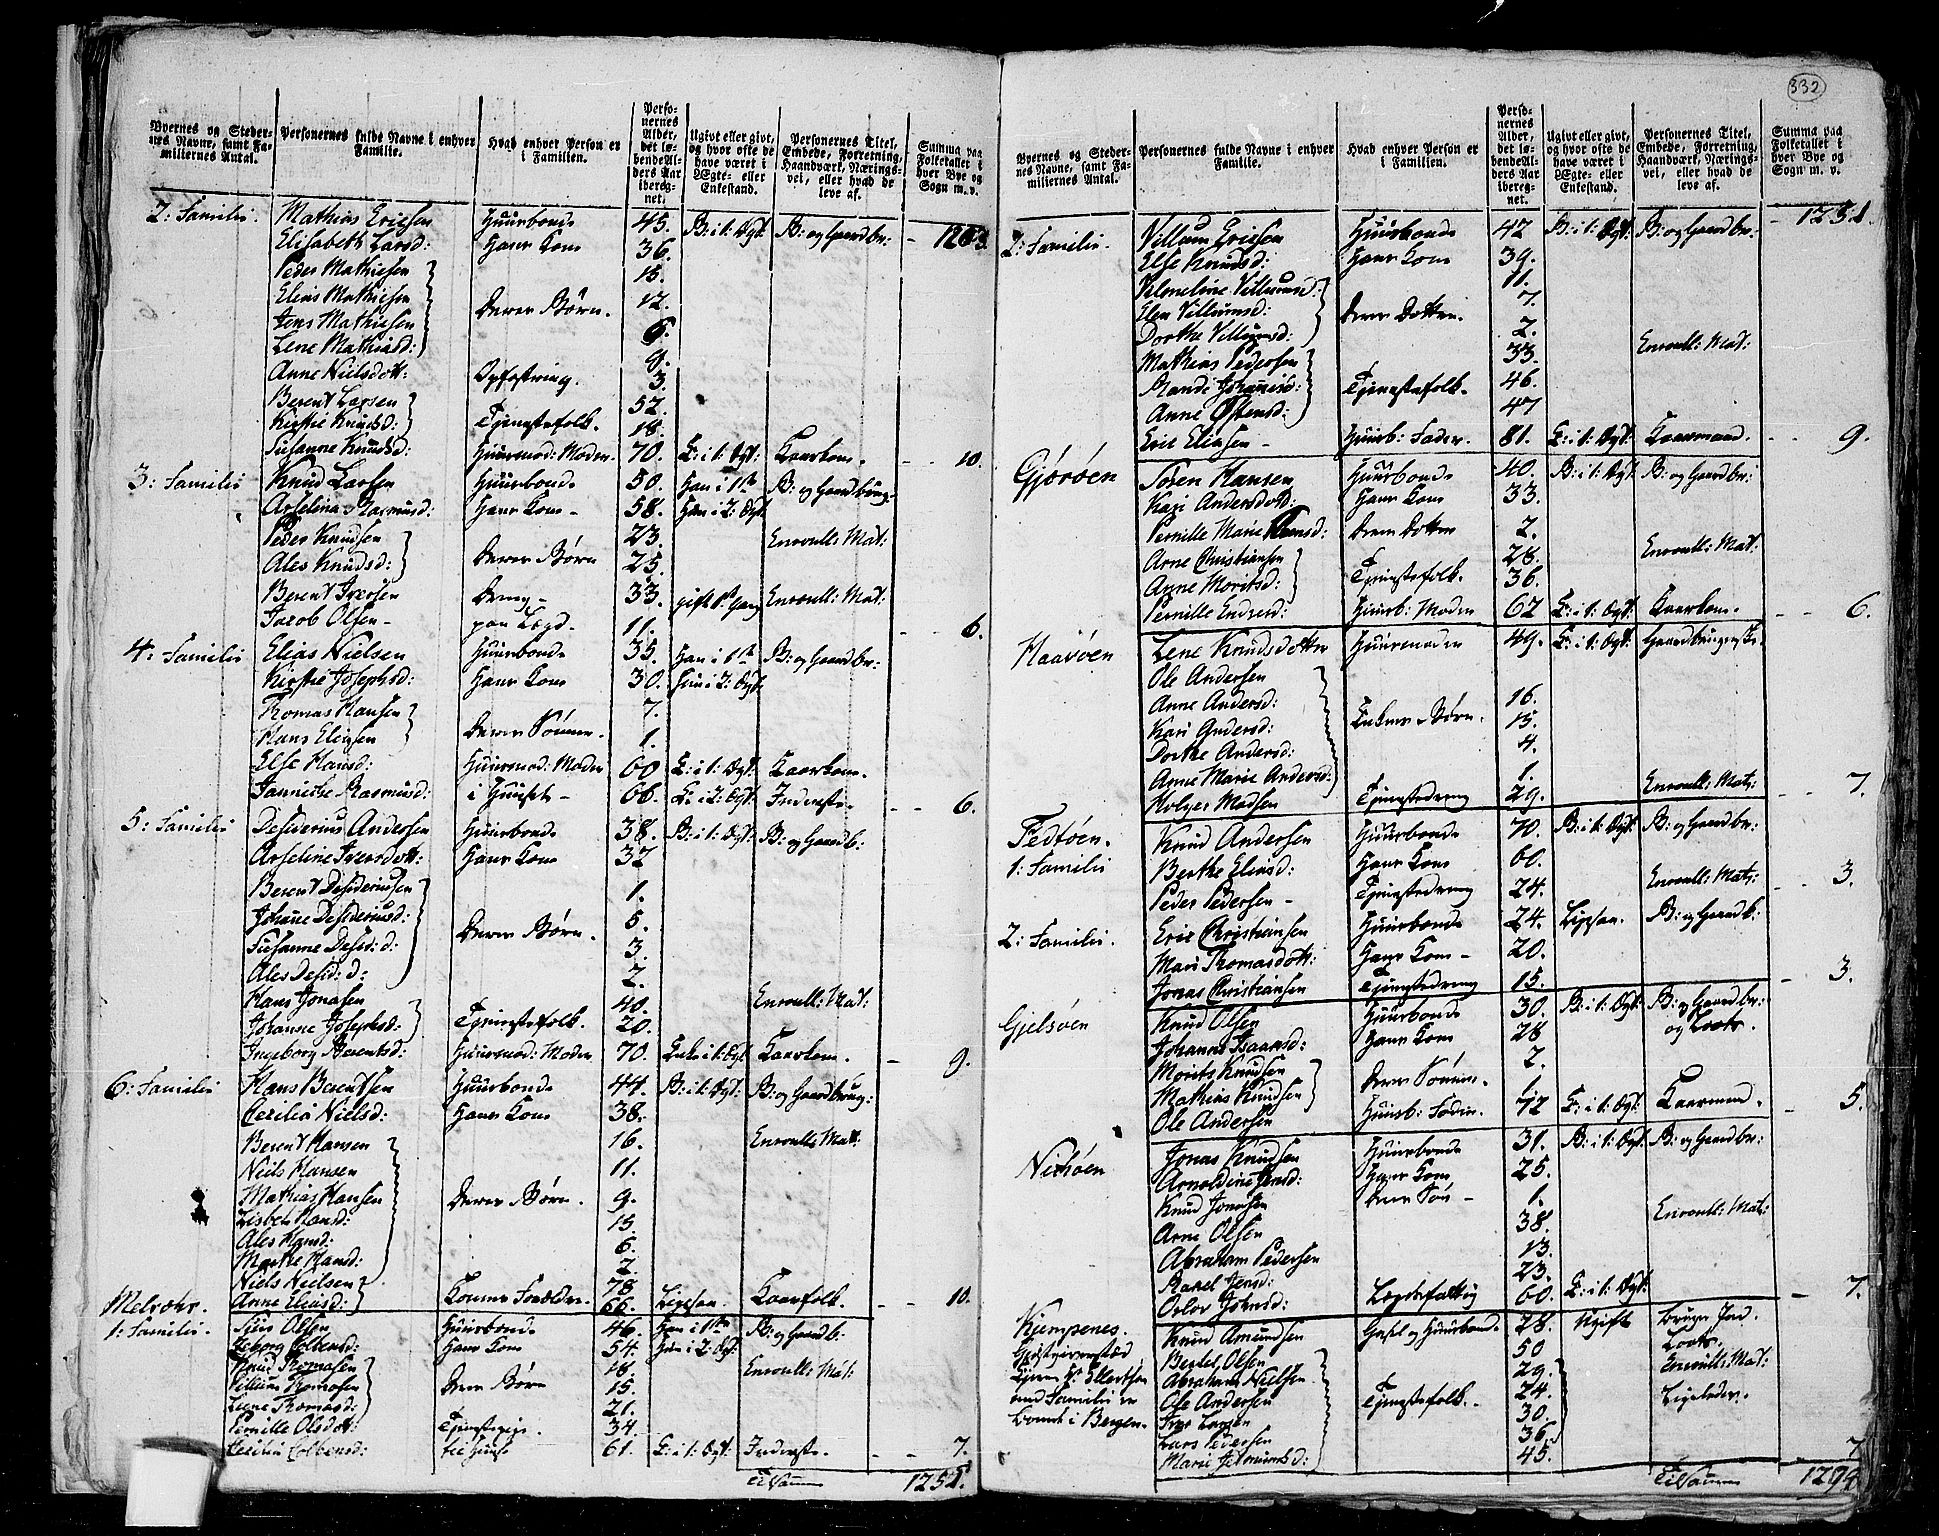 332
Byernes og Stedernes Navne, samt Familiernes Antal. Personernes fulde Navne i enhver Familie. Hvad enhver Person er i Familien. Personernes Alder, det løbende Alders Aar iberegnet. Ugivt eller givt, og hvor ofte de have været i Ægte- eller Enkestand. Personernes Titel, Embede, Forretning, Haandværk, Næringsvei, eller hvad de leve af. Summa paa Folketallet i hver Bye og Sogn m. v.
2: Familie. Mathias Ericsen Huusbonde 45. B: i 1: Ægt: B: og Gaardbr:
Elisabeth Larsd: Hans Kone 36.
Peder Mathiesen 15.
Elias Mathiesen 12.
Jens Mathiesen Deres Børn. 6.
Lene Mathiasd: 8.
Anne Nielsdott: Opfostring. 3.
Berent Larsen 52.
Kirstie Knudsd: Tjenestefolk. 18.
Susanne Knudsd: Huusmod: Moder 70. E: i 1: Ægt: Kaarkone. 10.
3: Familie Knud Larsen Huusbonde 50. Han i 1te B: og Gaardbrug:
Arselina Rasmusd: Hans Kone 58. Hun i 2: Ægt:
Peder Knudsen 23. Enroull: Mat:
Ales Knudsd: Deres Børn 25.
Berent Iversen Dreng 33. gift 1te Gang Enroull: Mat:
Jacob Olsen paa Lægd. 11. 6.
4: Familie Elias Nielsen Huusbonde 35. Han i 1te B: og Gaardbr:
Kirstie Josephsd: Hans Kone 30. Hun i 2: Ægt:
Thomas Hansen 7.
Hans Eliasen Deres Sønner. 1.
Else Hansd: Huusmod: Moder 60 E: i 1: Ægt: Kaarkone.
Jannicke Rasmusd: i Huuset 66. E: i 2: Ægt: Inderste 6.
5: Familie Desiderius Andersen Huusbonde 38. B: i 1: Ægt: B: og Gaardb:
Arseline Iversdott: Hans Kone 32
Berent Desideriusen 1.
Johanne Desideriusd: 5.
Susanne Desid: d: Deres Børn. 3.
Ales Desid: d: 2.
Hans Jonasen 40. Enroull: Mat:
Johanne Josephsd: Tjenestefolk. 20.
Ingeborg Berentsd: Huusmod: Moder 70. Enke i 1: Ægt: Kaarkone. 9.
6: Familie Hans Berentsen Huusbonde 44. B: i 1: Ægt: B: og Gaardbrug:
Cecilia Nielsd: Hans Kone 38.
Berent Hansen 16. Enroull: Mat:
Niels Hansen 11.
Mathias Hansen Deres Børn. 9.
Lisbet Hansd: 15.
Ales Hansd: 6.
Marthe Hansd: 2.
Niels Nielsen Konens Forældre. 78
Anne Eliasd: 66. Ligesaa. Kaarfolk. 10.
1: Familie. Olsen Huusbonde 46. Han i 1te B: og Gaardb:
Colbensd: Hans Kone 54. Hun i 2: Ægt:
Knud Thomasen 18. Enroull: Mat:
Villum Thomasen Deres Børn 15.
Lene Thomasd: 21.
Pernille Olsdott: Tjenestepige. 34.
Cecilia Colbensd: til Huus 61. E: i 1: Ægt: Inderste 7.
til Samme 1251.
Byernes og Stedernes Navne, samt Familiernes Antal. Personernes fulde Navne i enhver Familie. Hvad enhver Person er i Familien. Personernes Alder, det løbende Alders Aar iberegnet. Ugivt eller givt, og hvor ofte de have været i Ægte- eller Enkestand. Personernes Titel, Embede, Forretning, Haandværk, Næringsvei, eller hvad de leve af. Summa paa Folketallet i hver Bye og Sogn m. v.
1251.
2: Familie. Villum Ericsen Huusbonde 42 B: i 1: Ægt: B: og Gaardbr:
Else Knudsd: Hans Kone 39.
Villumsd: 11.
Elen Villumsd: Deres Dottre. 7.
Dorthe Villumsd: 2.
Mathias Pedersen 33. Enroull: Mat:
Randi Johannisd: Tjenestefolk. 46.
Anne Østensd: 47
Eric Eliasen Huusb: Fader. 81. E: i 1: Ægt: Kaarmand. 9.
Gjørøen Toren Hansen Huusbonde 40. B: i 1: Ægt: B: og Gaardbr:
Kari Andersdott: Hans Kone 33.
Pernille Marie Deres Dotter 2.
Arne Christiansen 28. Enroull: Mat:
Anne Moritsd: Tjenestefolk. 36.
Pernille Endresd: Huusb: Moder 62 E: i 1: Ægt: Kaarkone. 6.
Haavøen Lene Knudsdotter Huusmoder 49. E: i 1: Ægt: Gaardbrugerske.
Ole Andersen
Anne Andersd: 16.
Kari Andersd: Enkens Børn. 15.
Dorthe Andersd: 4.
Anne Marie Andersd: 1.
Holger Madsen Tjenestedreng 29. Enroull: Mat: 7.
Fedtøen. Knud Andersen Huusbonde 70. B: i 1: Ægt: B: og Gaardbr:
1: Familie Berthe Eliasd: Hans Kone 60.
Peder Pedersen Tjenestedreng 24. Enroull: Mat: 3.
2: Familie. Eric Christiansen Huusbonde 24. Ligesaa. B: og Gaardb:
Mari Thomasdott: Hans Kone 20.
Jonas Christiansen Tjenestedreng 15. 3.
Gjelsøen Knud Olsen Huusbonde 30. B: i 1: Ægt: B: og Gaardbr:
Johanne Isaansd: Hans Kone 28 og Loots.
Morits Knudsen 2.
Mathias Knudsen Deres Sønner. 1.
Ole Andersen Huusb: Fader 72 E: i 1: Ægt: Kaarmand. 5.
Jonas Knudsen Huusbonde 31. B: i 1: Ægt: B: og Gaardbr:
Arnoldine Jensd: Hans Kone 25.
Knud Jonasen Deres Søn 1.
Arne Olsen 38. Enroull: Mat:
Abraham Pedersen 13.
Rakel Jensd: 23.
Johnsd: Lægdsfattig 60. E: i 1: Ægt: 7.
Kjempenes. Knud Amundsen Gesel og Huusbond. 28. Ugift Bruger Jord
Giestgiverstæd Bertel Olsen 50 Loots.
Ellertsen Abraham Nielsen 29. Enroull: Mat:
med Familie er Ole Andersen Tjenestefolk. 24. Ligeledes.
boende i Bergen. Iver Larsen 30.
Lars Pedersen 36.
Marie 45. 7
til Samme 1294